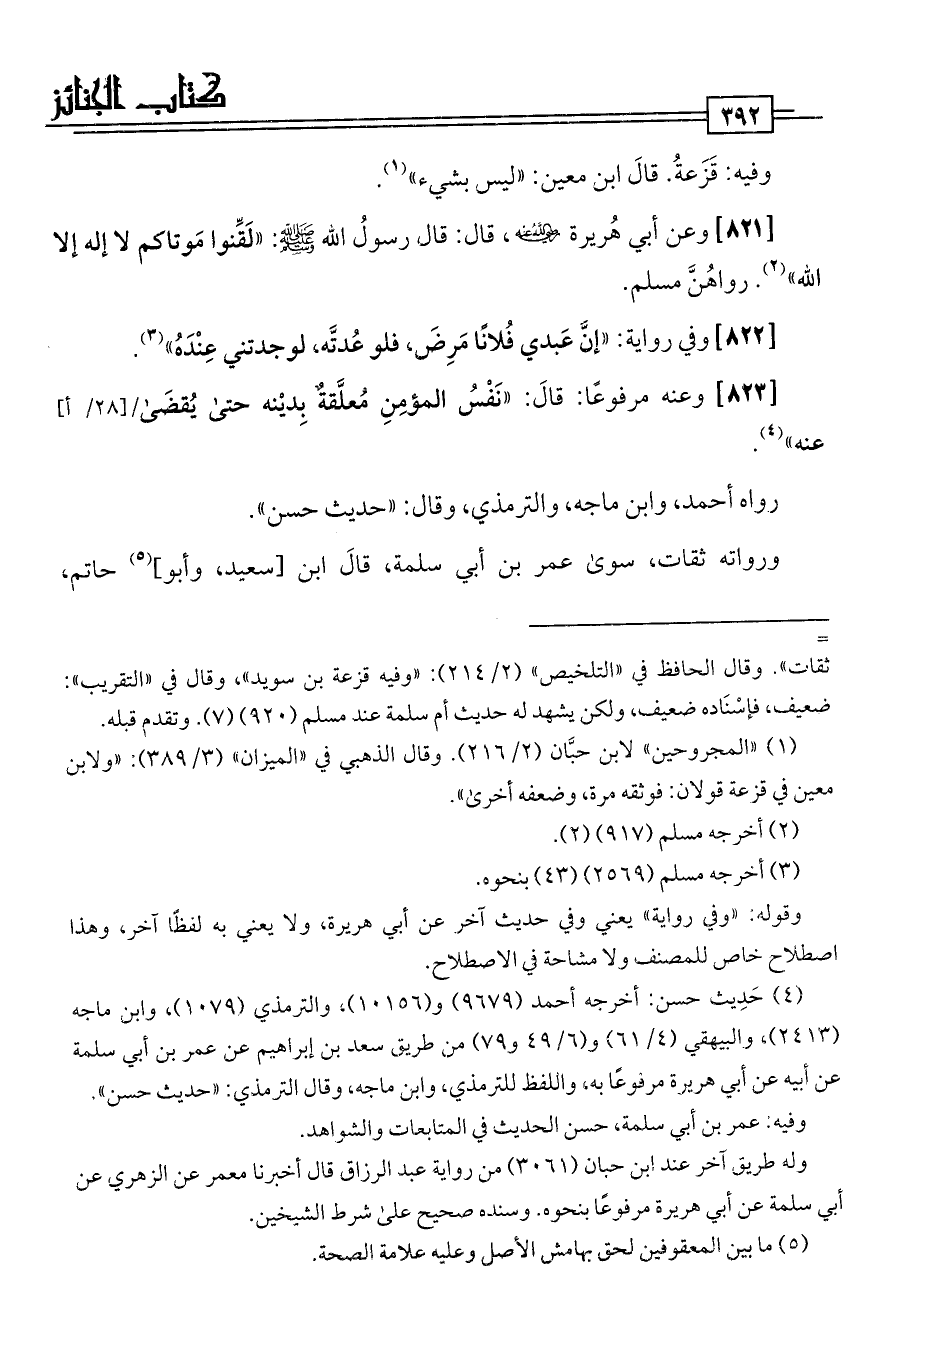 كتاب الجنائز
٣٩٢
وفيه: قَزَعةُ. قالَ ابن معين: «ليس بشيء»(١).
[٨٢١] وعن أبي هُريرة رضي الله عنه، قال: قال رسولُ الله ﷺ: «لَقِّنوا مَوتاكم لا إله إلا
الله»(٢). رواهُنَّ مسلم.
[٨٢٢] وفي رواية: «إنَّ عَبدي فُلانًا مَرِضَ، فلو عُدتَّه، لوجدتني عِنْدَهُ»(٣).
[٨٢٣] وعنه مرفوعًا: قالَ: «نَفْسُ المؤمِنِ مُعلَّقةٌ بِديْنه حتىٰ يُقضَىٰ/[٢٨/ أ]
عنه»(٤).
رواه أحمد، وابن ماجه، والترمذي، وقال: «حديث حسن».
ورواته ثقات، سوىٰ عمر بن أبي سلمة، قالَ ابن [سعيد، وأبو](٥) حاتم،
=
ثقات». وقال الحافظ في «التلخيص» (٢/ ٢١٤): «وفيه قزعة بن سويد»، وقال في «التقريب»:
ضعيف، فإسْنَاده ضعيف، ولكن يشهد له حديث أم سلمة عند مسلم (٩٢٠) (٧). وتقدم قبله.
(١) «المجروحين» لابن حبَّان (٢/ ٢١٦). وقال الذهبي في «الميزان» (٣/ ٣٨٩): «ولابن
معين في قزعة قولان: فوثقه مرة، وضعفه أخرىٰ».
(٢) أخرجه مسلم (٩١٧) (٢).
(٣) أخرجه مسلم (٢٥٦٩) (٤٣) بنحوه.
وقوله: «وفي رواية» يعني وفي حديث آخر عن أبي هريرة، ولا يعني به لفظًا آخر، وهذا
اصطلاح خاص للمصنف ولا مشاحة في الاصطلاح.
(٤) حَدِيث حسن: أخرجه أحمد (٩٦٧٩) و(١٠١٥٦)، والترمذي (١٠٧٩)، وابن ماجه
(٢٤١٣)، والبيهقي (٤/ ٦١) و(٦/ ٤٩ و٧٩) من طريق سعد بن إبراهيم عن عمر بن أبي سلمة
عن أبيه عن أبي هريرة مرفوعًا به، واللفظ للترمذي، وابن ماجه، وقال الترمذي: «حديث حسن».
وفيه: عمر بن أبي سلمة، حسن الحديث في المتابعات والشواهد.
وله طريق آخر عند ابن حبان (٣٠٦١) من رواية عبد الرزاق قال أخبرنا معمر عن الزهري عن
أبي سلمة عن أبي هريرة مرفوعًا بنحوه. وسنده صحيح علىٰ شرط الشيخين.
(٥) ما بين المعقوفين لحق بهامش الأصل وعليه علامة الصحة.